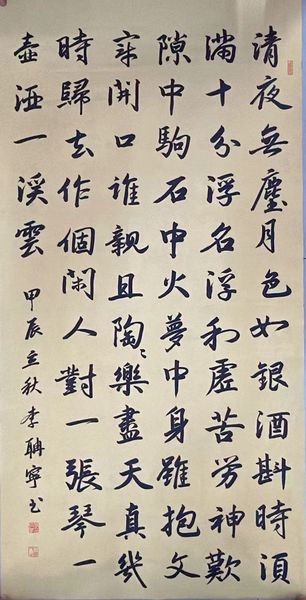 清夜無塵月色如銀酒斟時須
滿十分浮名浮利虛苦勞神歎
隙中駒石中火夢中身雖抱文
章開口誰親且陶〻樂盡天真幾
時歸去作個閑人對一張琴一
壺酒一溪雲
甲辰立秋李聃寧书